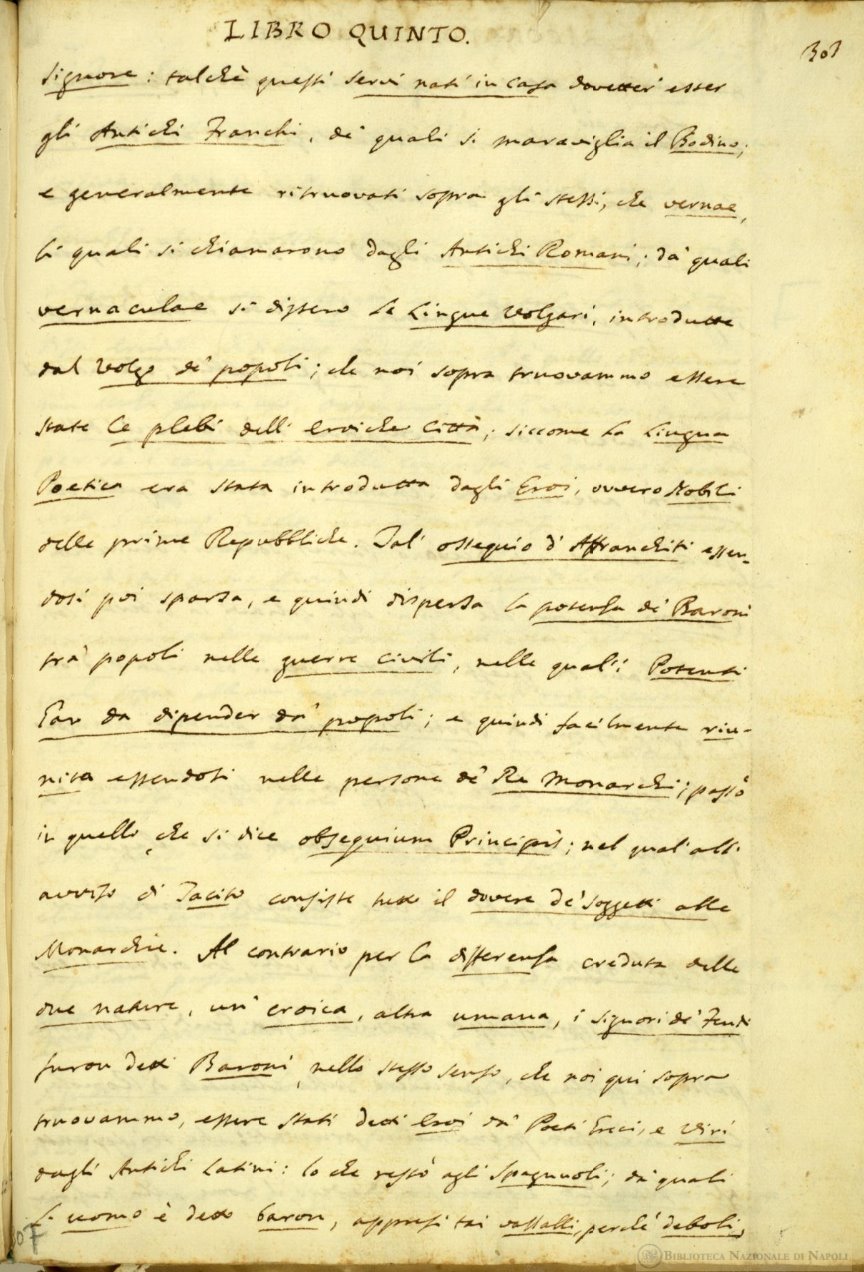 LIBRO QUINTO.
301
Signore: talchè questi servi nati in casa dovetter' esser
gli Antichi Franchi, de' quali si maraviglia il Bodino;
e generalmente ritruovati sopra gli stessi, che vernae,
li quali si chiamarono dagli Antichi Romani; da' quali
vernaculae si dissero le Lingue Volgari, introdutte
dal Volgo de' popoli; che noi sopra truovammo essere
state le plebi dell' eroiche Città; siccome la Lingua
Poetica era stata introdutta dagli Eroi, ovvero Nobili
delle prime Repubbliche. Tal' ossequio d' Affranchiti essen-
dosi poi sparsa, e quindi dispersa la potenza de' Baroni
tra' popoli nelle guerre civili, nelle quali i Potenti
han da dipender da' popoli; e quindi facilmente riu-
nita essendosi nelle persone de' Re Monarchi; passò
in quello, che si dice obsequium Principis; nel qual' all'
avviso di Tacito consiste tutto il dovere de' Soggetti alle
Monarchie. Al contrario per la differenza creduta delle
due nature, un' eroica, altra umana, i Signori de' Feudi
furon detti Baroni, nello stesso senso, che noi qui sopra
truovammo, essere stati detti Eroi da' Poeti Greci, e Viri
dagli Antichi Latini: lo che restò agli Spagnuoli; da' quali
l' uomo è detto baron, appresi tai vassalli, perchè deboli,
307
BIBLIOTECA NAZIONALE DI NAPOLI